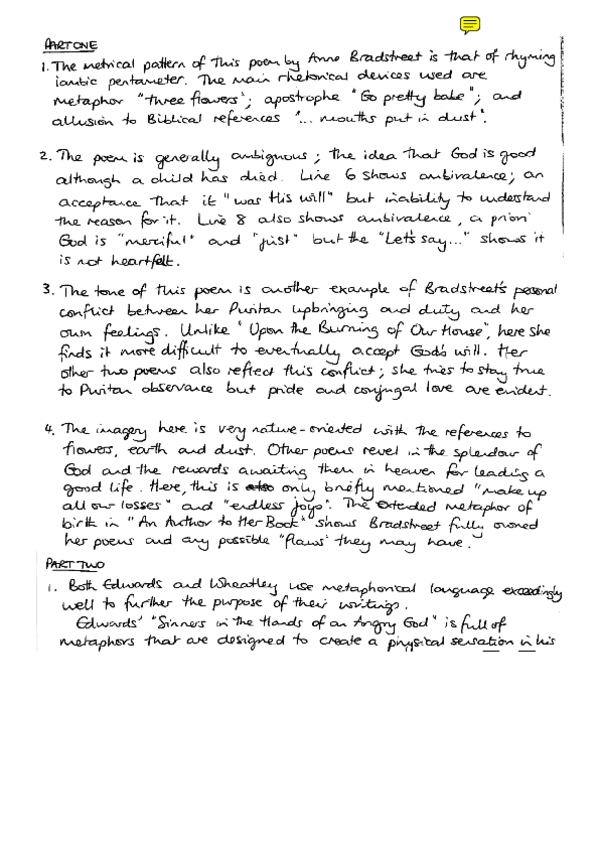 PART ONE
1. The metrical pattern of this poem by Anne Bradstreet is that of rhyming
iambic pentameter. The main rhetorical devices used are
metaphor "three flowers"; apostrophe "Go pretty babe"; and
allusion to Biblical references "... mouths put in dust".
2. The poem is generally ambiguous; the idea that God is good
although a child has died. Line 6 shows ambivalence; an
acceptance that it "was His will" but inability to understand
the reason for it. Line 8 also shows ambivalence, a priori
God is "merciful" and "just" but the "Let's say..." shows it
is not heartfelt.
3. The tone of this poem is another example of Bradstreet's personal
conflict between her Puritan upbringing and duty and her
own feelings. Unlike "Upon the Burning of Our House", here she
finds it more difficult to eventually accept God's will. Her
other two poems also reflect this conflict; she tries to stay true
to Puritan observance but pride and conjugal love are evident.
4. The imagery here is very nature-oriented with the references to
flowers, earth and dust. Other poems revel in the splendour of
God and the rewards awaiting them in heaven for leading a
good life. Here, this is only briefly mentioned "make up
all our losses" and "endless joys". The extended metaphor of
birth in "An Author to Her Book" shows Bradstreet fully owned
her poems and any possible "flaws" they may have.
PART TWO
1. Both Edwards and Wheatley use metaphorical language exceedingly
well to further the purpose of their writings.
Edwards' "Sinners in the Hands of an Angry God" is full of
metaphors that are designed to create a physical sensation in his